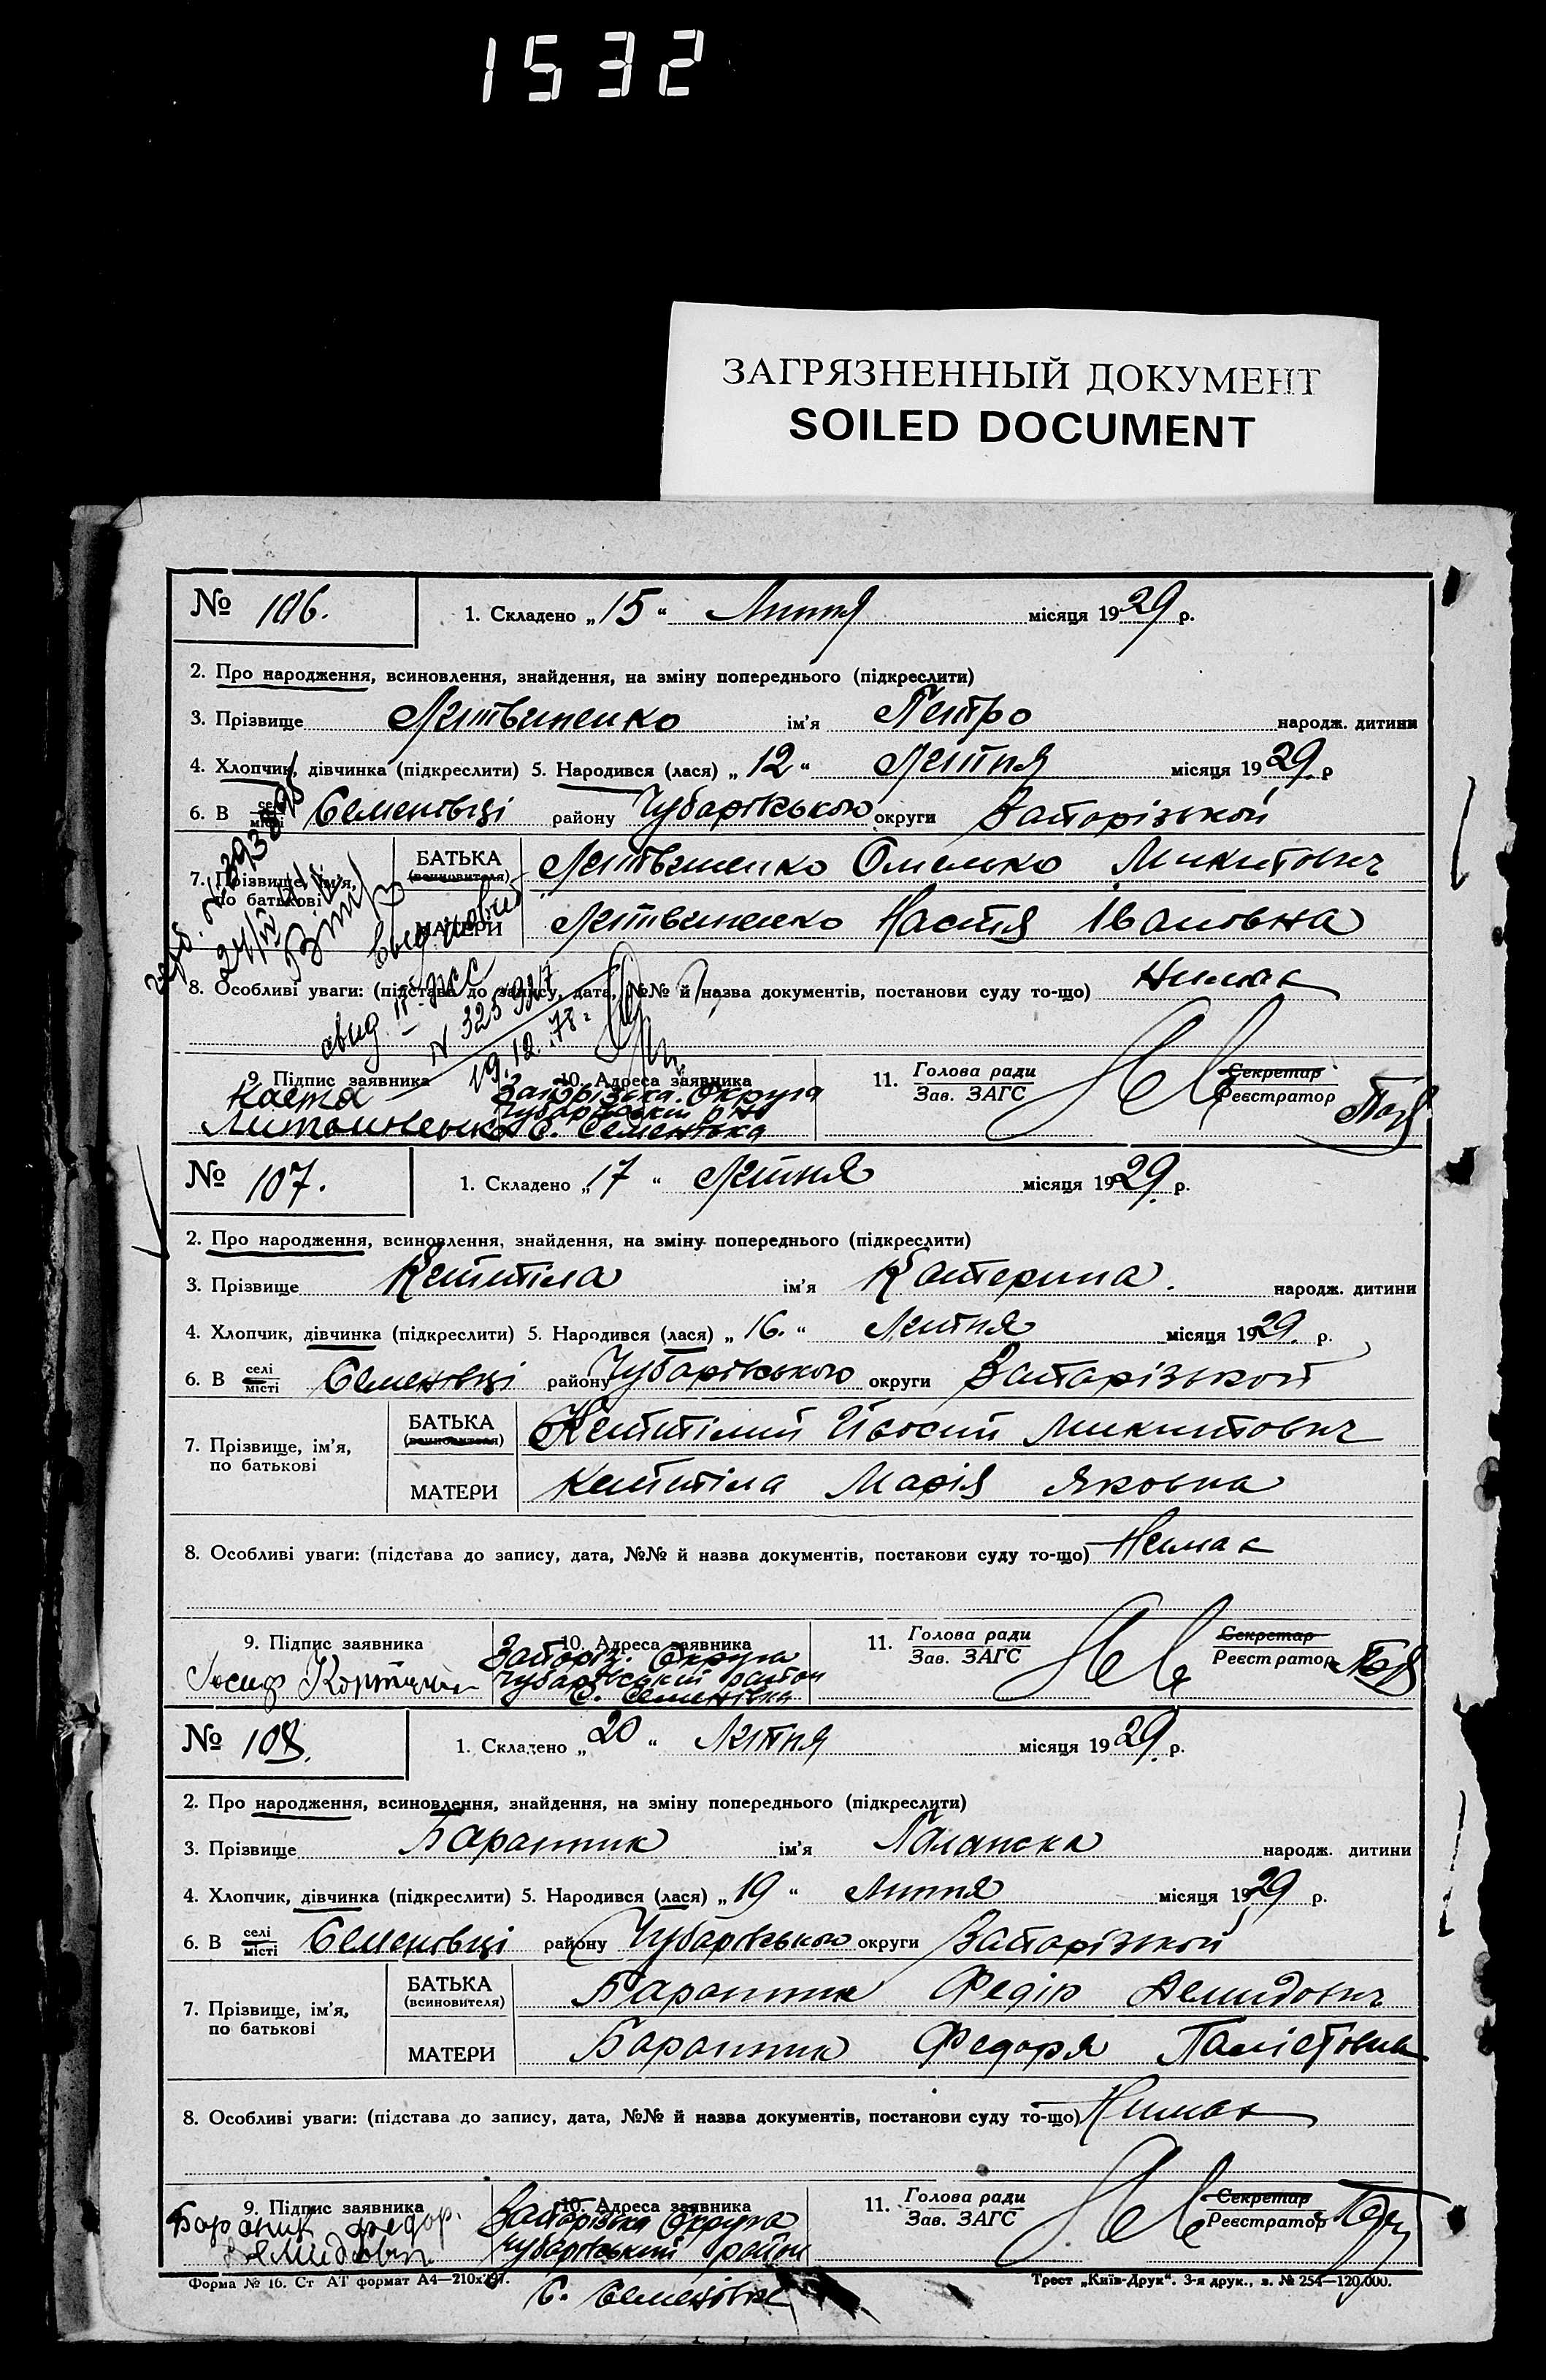 1532
ЗАГРЯЗНЕННЫЙ ДОКУМЕНТ
SOILED DOCUMENT
№ 106. 1. Складено „15“ Липня місяця 1929 р.
2. Про народження, всиновлення, знайдення, на зміну попереднього (підкреслити)
3. Прізвище Литвиненко ім’я Петро народж. дитини
4. Хлопчик, дівчинка (підкреслити) 5. Народився (лася) „12“ Липня місяця 1929 р
6. В селі місті Семенівці району Чубарівського округи Запорізькой
7. Прізвище, ім’я, по батькові БАТЬКА (всиновителя) Литвиненко Омелько Микитович
МАТЕРИ Литвиненко Настя Івановна
8. Особливі уваги: (підстава до запису, дата, №№ й назва документів, постанови суду то-що) Нимає
свид. II-ЖС
N 325927
19.12.78 г
9. Підпис заявника 10. Адреса заявника 11. Голова ради Зав. ЗАГС Секретар Реєстратор
Настя Запорізька Округа
Чубарівський р-н
с. Семенівка
№ 107. 1. Складено „17“ Липня місяця 1929 р.
2. Про народження, всиновлення, знайдення, на зміну попереднього (підкреслити)
3. Прізвище ім’я Катерина. народж. дитини
4. Хлопчик, дівчинка (підкреслити) 5. Народився (лася) „16.“ Липня місяця 1929. р.
6. В селі місті Семенівці району Чубарівського округи Запорізькой
7. Прізвище, ім’я, по батькові БАТЬКА (всиновителя) Микитович
МАТЕРИ Марія Яковна
8. Особливі уваги: (підстава до запису, дата, №№ й назва документів, постакови суду то-що) Немає
9. Підпис заявника 10. Адреса заявника 11. Голова ради Зав. ЗАГС Секретар Реєстратор
Запоріз. Округа
Йосиф Чубарівський район
с. Семенівка
№ 108. 1. Складено „20“ Липня місяця 1929 р.
2. Про народження, всиновлення, знайдення, на зміну попереднього (підкреслити)
3. Прізвище Баранник ім’я Палажка народж. дитини
4. Хлопчик, дівчинка (підкреслити) 5. Народився (лася) „19“ Липня місяця 1929 р.
6. В селі місті Семенівці району Чубарівського округи Запорізькой
7. Прізвище, ім’я, по батькові БАТЬКА (всиновителя) Баранник Федір Демидович
МАТЕРИ Баранник Федоря
8. Особливі уваги: (підстава до запису, дата, №№ й назва документів, постанови суду то-що) Нимає
9. Підпис заявника 10. Адреса заявника 11. Голова ради Зав. ЗАГС Секретар Реєстратор
Баранник Федор. Запорізька Округа
Демидович Чубарівський район
Форма № 16. Ст АТ формат А4—210х297. Трест „Київ-Друк“. 3-я друк., з. № 254—120.000.
С. Семенівка